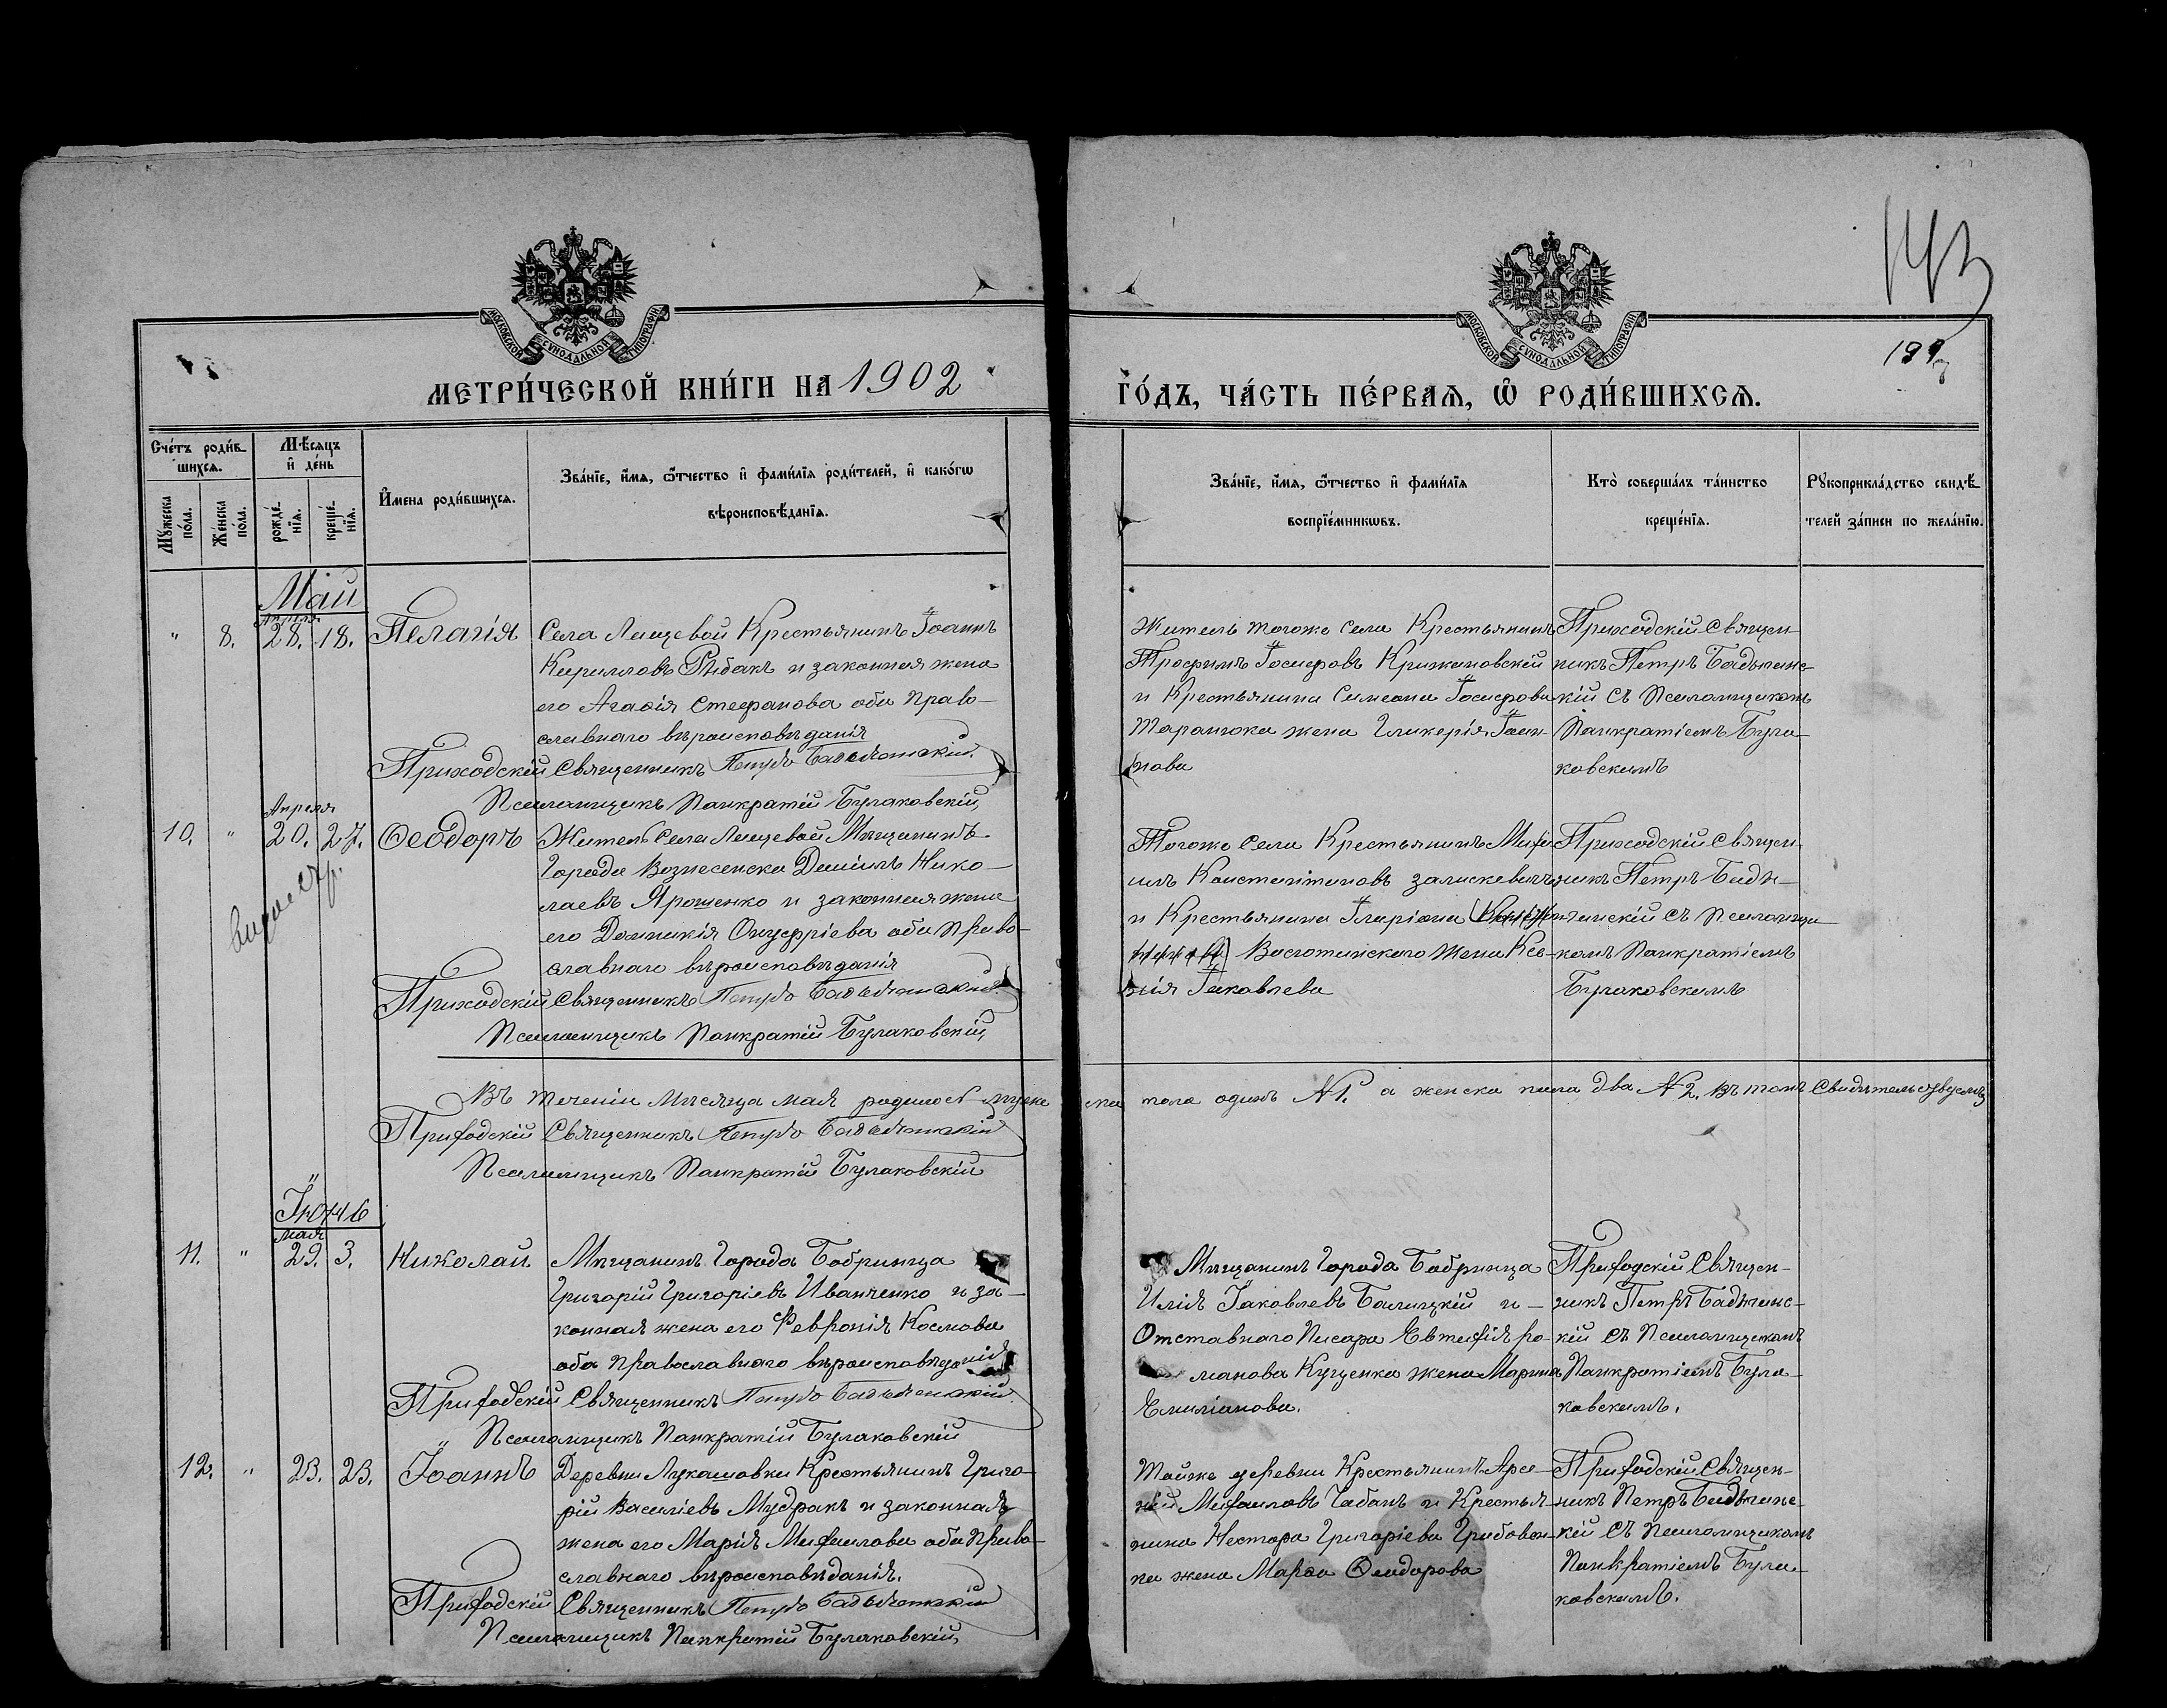 143
199
МОСКОВСКОЙ СУНОДАЛЬНОЙ ТИПОГРАФІИ
МОСКОВСКОЙ СУНОДАЛЬНОЙ ТИПОГРАФІИ
МЕТРИ́ЧЕСКОЙ КНИ́ГИ НА 1902
ГО́ДЪ, ЧА́СТЬ ПЕ́РВАѦ, Ѽ РОДИ́ВШИХСѦ.
Сче́тъ роди́в-
шихсѧ.
Мѣсѧцъ
и де́нь
Мꙋжеска по́ла.
Же́нска по́ла.
рожде́-нїѧ.
креще́-нїѧ.
И҆мена роди́вшихсѧ.
Зва́нїе, и҆́мѧ, ѻ҆́тчество и҆ фами́лїѧ роди́телей, и҆ како́гѡ
вѣроисповѣ́данїѧ.
Зва́нїе, и҆́мѧ, ѻ҆́тчество и҆ фами́лїѧ
воспрїе́мникѡвъ.
Кто̀ соверша́лъ та́инство
креще́нїѧ.
Рꙋкоприкла́дство свидѣ́-
телей за́писи по жела́нїю.
Май
Апреля
" 8. 28. 18. Пелагія
Села Лещевой Крестьянинъ Іоаннъ
Кирилловъ Рыбакъ и законная жена
его Агафія Стефанова оба право-
славнаго вѣроисповѣданія
Приходскій Священникъ Петръ
Псаломщикъ Панкратій Булаковскій
Житель тогоже села Крестьянинъ
Трофимъ Іосифовъ Крижановскій
и Крестьянина Симеона Іосифова
Таранюка жена Гликерія Іоан-
нова
Приходскій Священ-
никъ Петръ
кій съ Псаломщикомъ
Панкратіемъ Була-
ковскимъ
Апреля
10. " 20. 27. Ѳеодоръ
Житель Села Лещевой Мѣщанинъ
Города Вознесенска Даніилъ Нико-
лаевъ Ярошенко и законная жена
его Домникія Онуфріева оба право-
славнаго вѣроисповѣданія
Приходскій Священникъ Петръ
Псаломщикъ Панкратій Булаковскій
Тогоже Села Крестьянинъ Миха-
илъ Константиновъ
и Крестьянина Иларіона
жена Ксе-
нія Іаковлева
Приходскій Священ-
никъ Петръ
съ Псаломщи-
комъ Панкратіемъ
Булаковскимъ
Въ теченіи Мѣсяца мая родилось мужска пола одинъ №1. а женска пола два №2. въ томъ Свидѣтельствуемъ
Приходскій Священникъ Петръ
Псаломщикъ Панкратій Булаковскій
Іюнь
мая
11. " 29. 3. Николай
Мѣщанинъ Города Бобринца
Григорій Григоріевъ Иванченко и за-
конная жена его Февронія Космова
оба православнаго вѣроисповѣданія
Приходскій Священникъ Петръ
Псаломщикъ Панкратій Булаковскій
Мѣщанинъ Города Бобринца
Илія Іаковлевъ Балицкій и-
Отставнаго Писара Евтихія Ро-
манова Куценка жена Марина
Емиліанова.
Приходскій Священ-
никъ Петръ
кій съ Псаломщикомъ
Панкратіемъ Була-
ковскимъ.
12. " 23. 23. Іоаннъ
Деревни Лукашовки Крестьянинъ Григо-
рій Василіевъ Мудракъ и законная
жена его Марія Михаилова оба право-
славнаго вѣроисповѣданія.
Приходскій Священникъ Петръ
Псаломщикъ Панкратій Булаковскій
Тойже деревни Крестьянинъ Арсе-
ній Михаиловъ Чабанъ и Крестья-
нина Нестора Григоріева
жена Марѳа Ѳеодорова
Приходскій Священ-
никъ Петръ
кій съ Псаломщикомъ
Панкратіемъ Була-
ковскимъ.